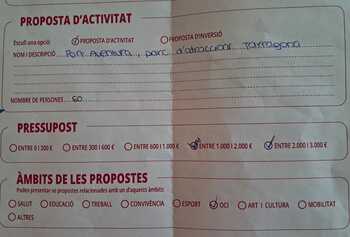 PROPOSTA D'ACTIVITAT
Escull una opció: PROPOSTA D'ACTIVITAT PROPOSTA D'INVERSIÓ
NOM I DESCRIPCIÓ Port Aventura, parc d'atraccions Tarragona
NOMBRE DE PERSONES 60
PRESSUPOST
ENTRE 0 I 300 € ENTRE 300 I 600 € ENTRE 600 I 1.000 € ENTRE 1.000 I 2.000 € ENTRE 2.000 I 3.000 €
ÀMBITS DE LES PROPOSTES
Podeu presentar les propostes relacionades amb un d'aquests àmbits:
SALUT EDUCACIÓ TREBALL CONVIVÈNCIA ESPORT OCI ART I CULTURA MOBILITAT
ALTRES